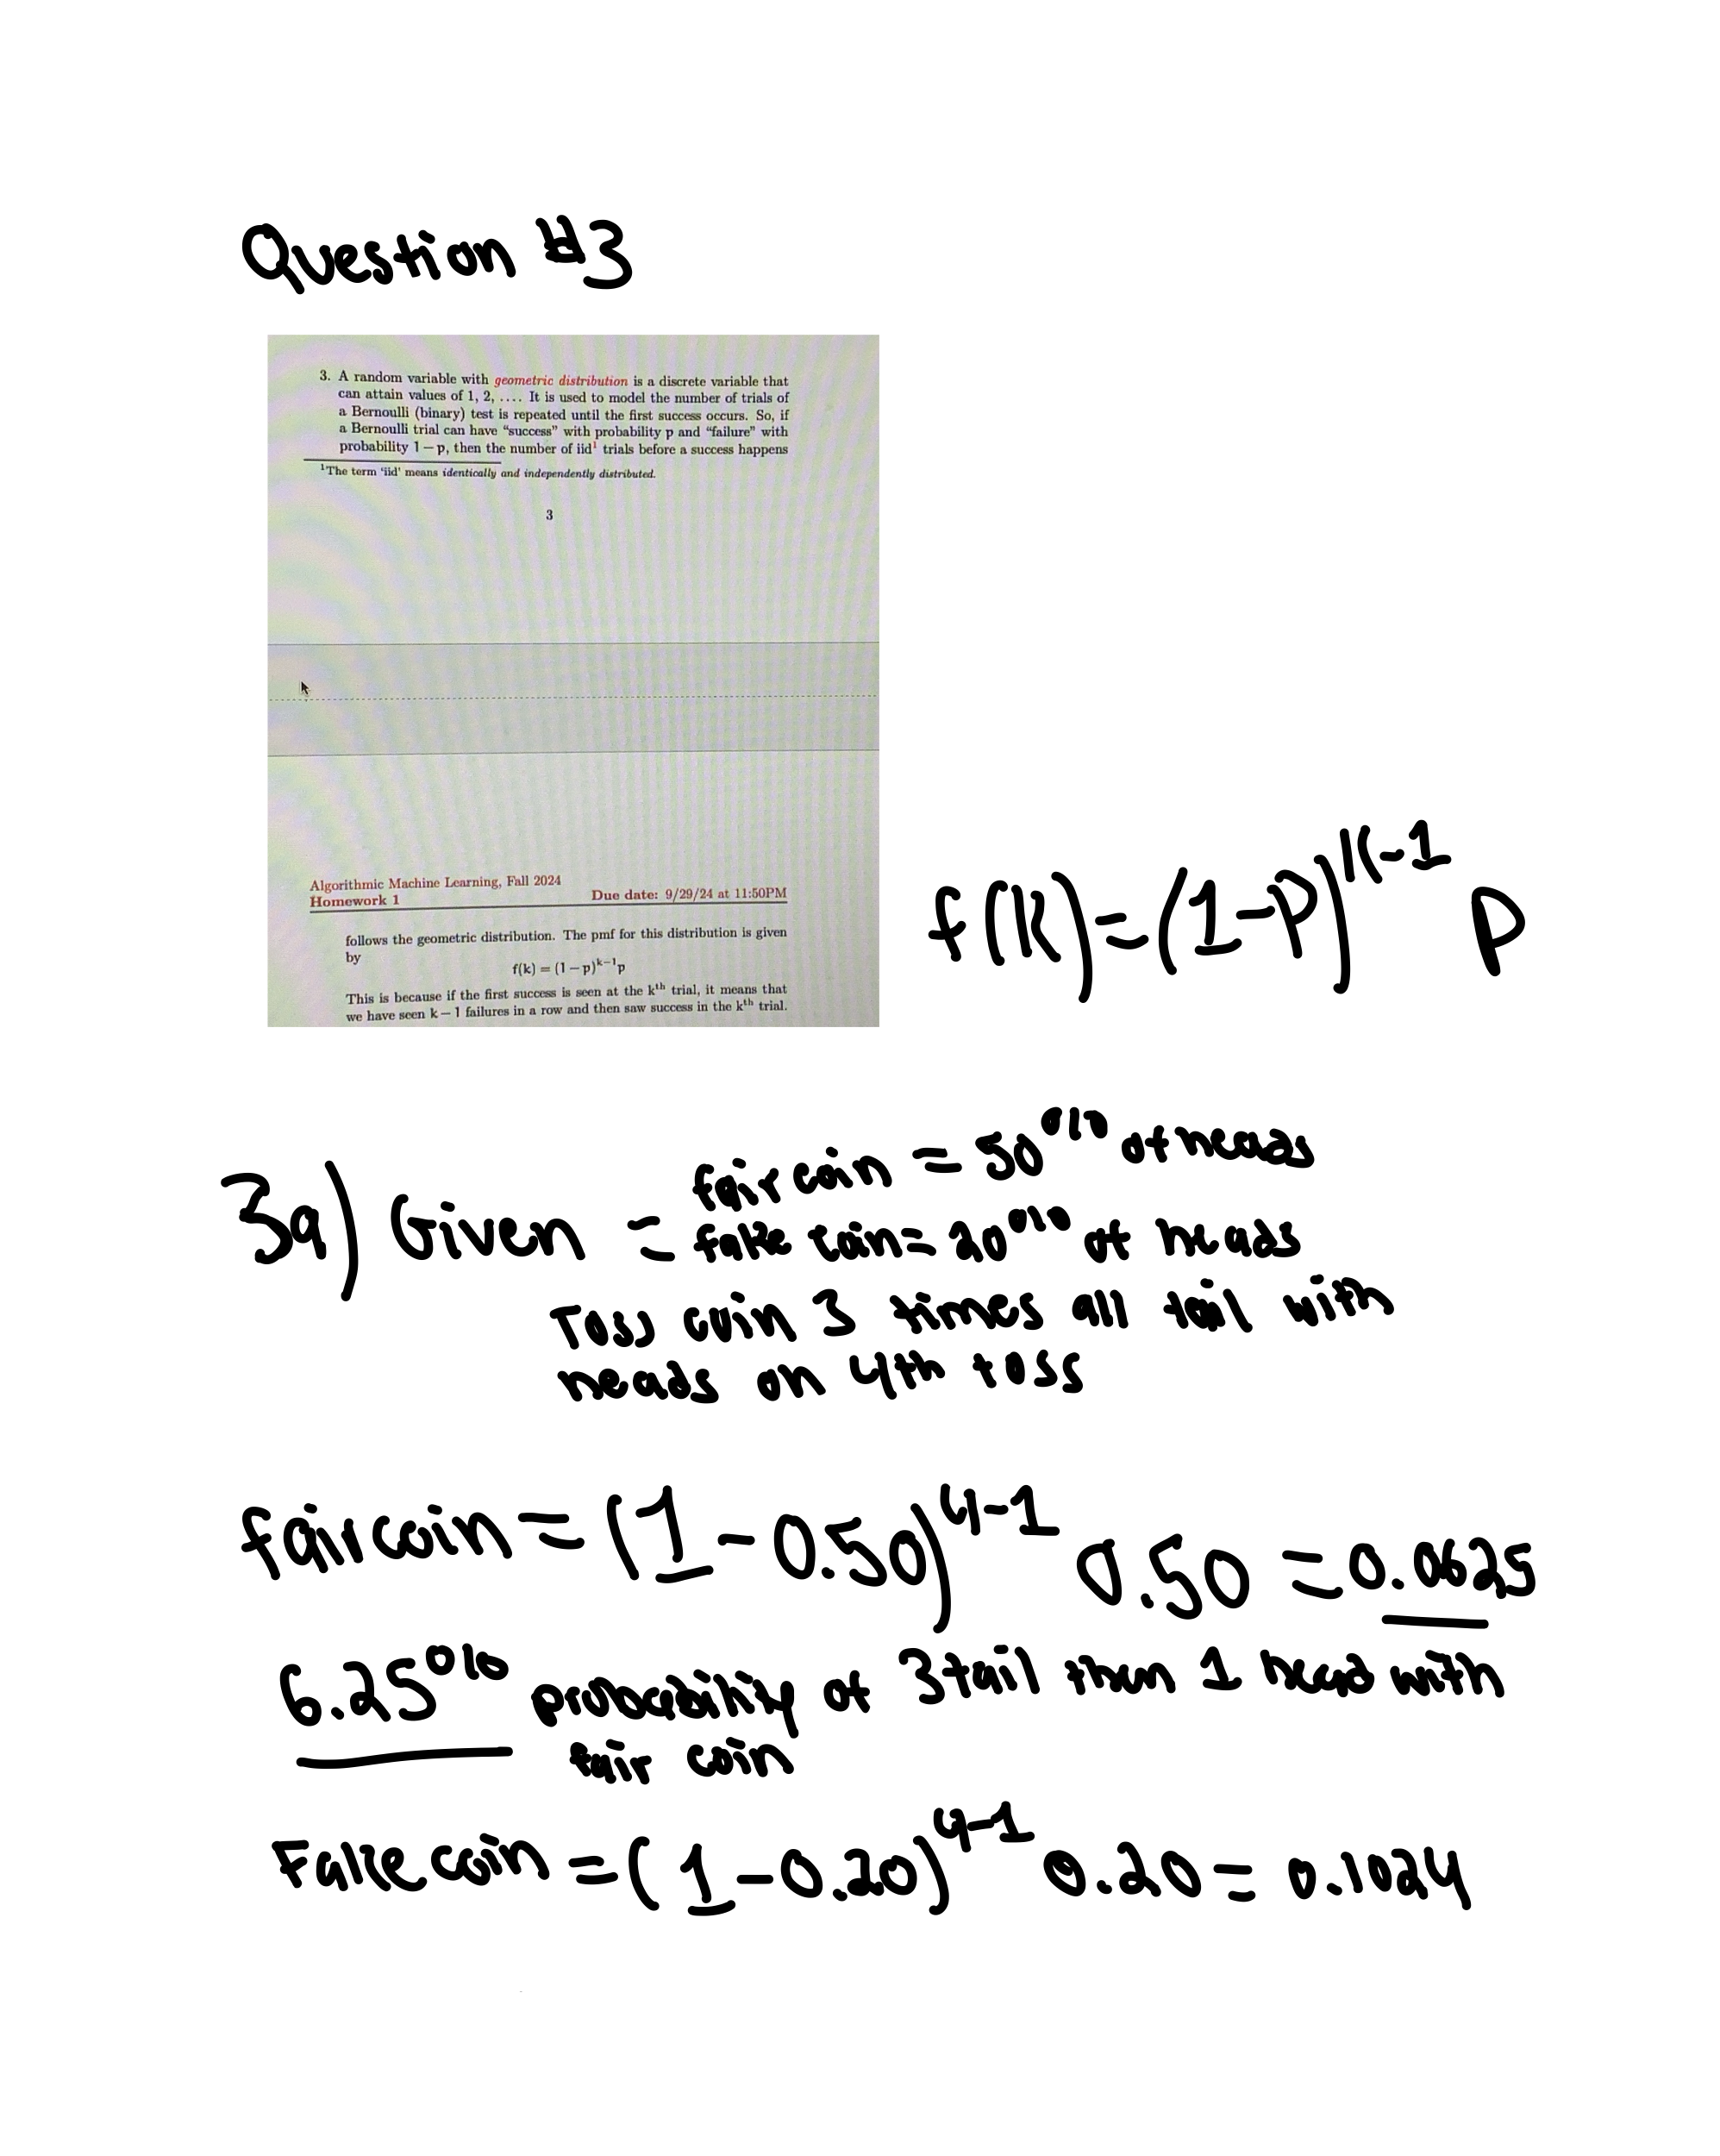 Question #3
3. A random variable with geometric distribution is a discrete variable that
can attain values of 1, 2, .... It is used to model the number of trials of
a Bernoulli (binary) test is repeated until the first success occurs. So, if
a Bernoulli trial can have “success” with probability p and “failure” with
probability 1 − p, then the number of iid¹ trials before a success happens
¹The term ‘iid’ means identically and independently distributed.
3
Algorithmic Machine Learning, Fall 2024
Homework 1 Due date: 9/29/24 at 11:50PM
follows the geometric distribution. The pmf for this distribution is given
by
f(k) = (1 − p)^{k−1}p
This is because if the first success is seen at the k^{th} trial, it means that
we have seen k − 1 failures in a row and then saw success in the k^{th} trial.
f(k)=(1-p)^{k-1} p
3a) Given = fair coin = 50% of heads
fake coin= 20% of heads
Toss coin 3 times all tail with
heads on 4th toss
fair coin = (1-0.50)^{4-1} 0.50 = 0.0625
6.25% probability of 3 tail then 1 head with
fair coin
Fake coin = (1-0.20)^{4-1} 0.20 = 0.1024